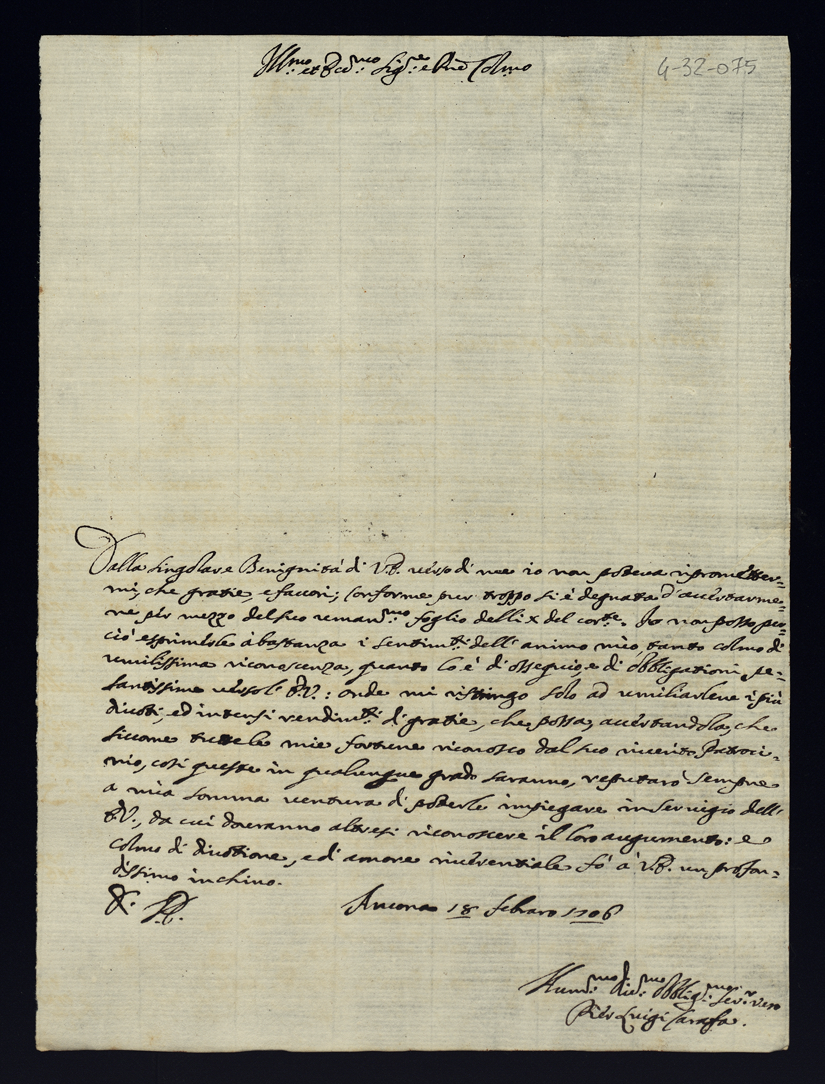 Ill.mo et Ecc.mo Sig.re e Pne Col.mo
4-32-075
Dalla singolare Benignità di V.E. verso di me io non poteva riprometter=
mi, che gratie, e favori; conforme pur troppo si è degnata d'accertarme=
ne per mezzo del suo uman.mo foglio delli x del corr.te. Io non posso per=
ciò esprimerle à bastanza i sentim.ti dell'animo mio, tanto colmo di
umilissima riconoscenza, quanto lo è d'ossequio, e di obbligationi pe=
santissime verso l'E.V.: onde mi ristringo solo ad umiliarlene i più
divoti, ed intensi rendim.ti di gratie, che possa, accertandola, che
siccome tutte le mie fortune riconosco dal suo riverito Patroci=
nio, così queste in qualunque grado saranno, reputarò sempre
a mia somma ventura di poterle impiegare in servigio dell'
E.V., da cui doveranno altresì riconoscere il loro augumento: e
colmo di divotione, e di amore riverentiale fò à V.E. un profon=
dissimo inchino.
Ancona 18 febraro 1706
Hum.mo Div.mo Obblig.mo Ser.r vero
Pier Luigi Carafa.